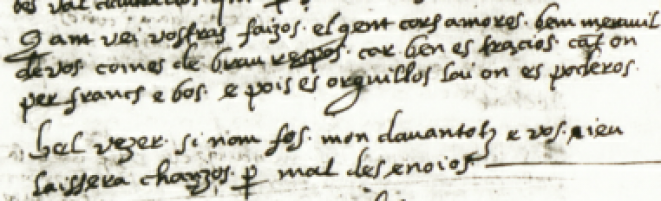 Qant vei vostras faizos. el gent cors amoros. bem meravil
de vos. comes de brau respos. car ben es tracios. cant on
per francs e bos. e pois es orguillos lai on es poderos.
bel vezer. si nom fos. mon davantotz e vos. ieu
laissera chanzos. p mal des enoios